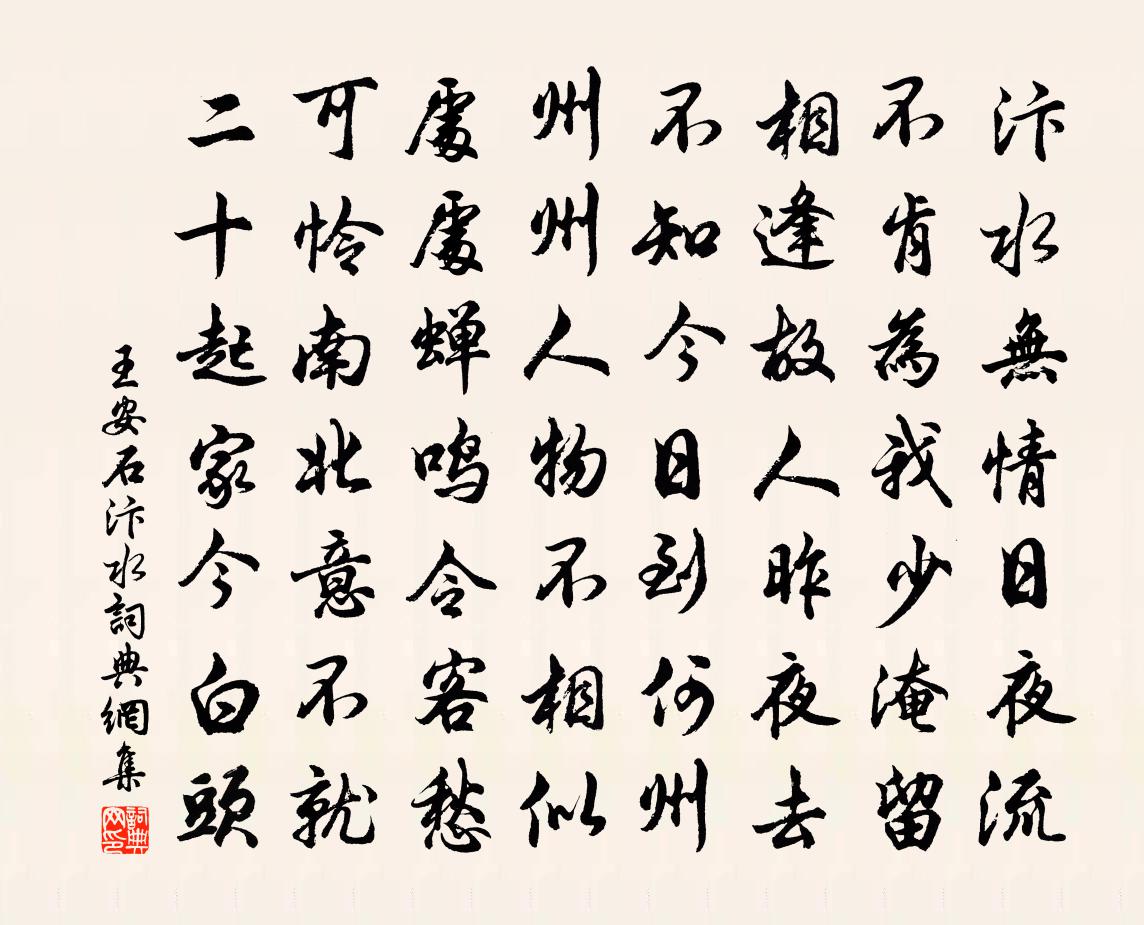 汴水無情日夜流
不肯為我少淹留
相逢故人昨夜去
不知今日到何州
州州人物不相似
處處蟬鳴令客愁
可憐南北意不就
二十起家今白頭
王安石汴水詞典網集
詞典網印